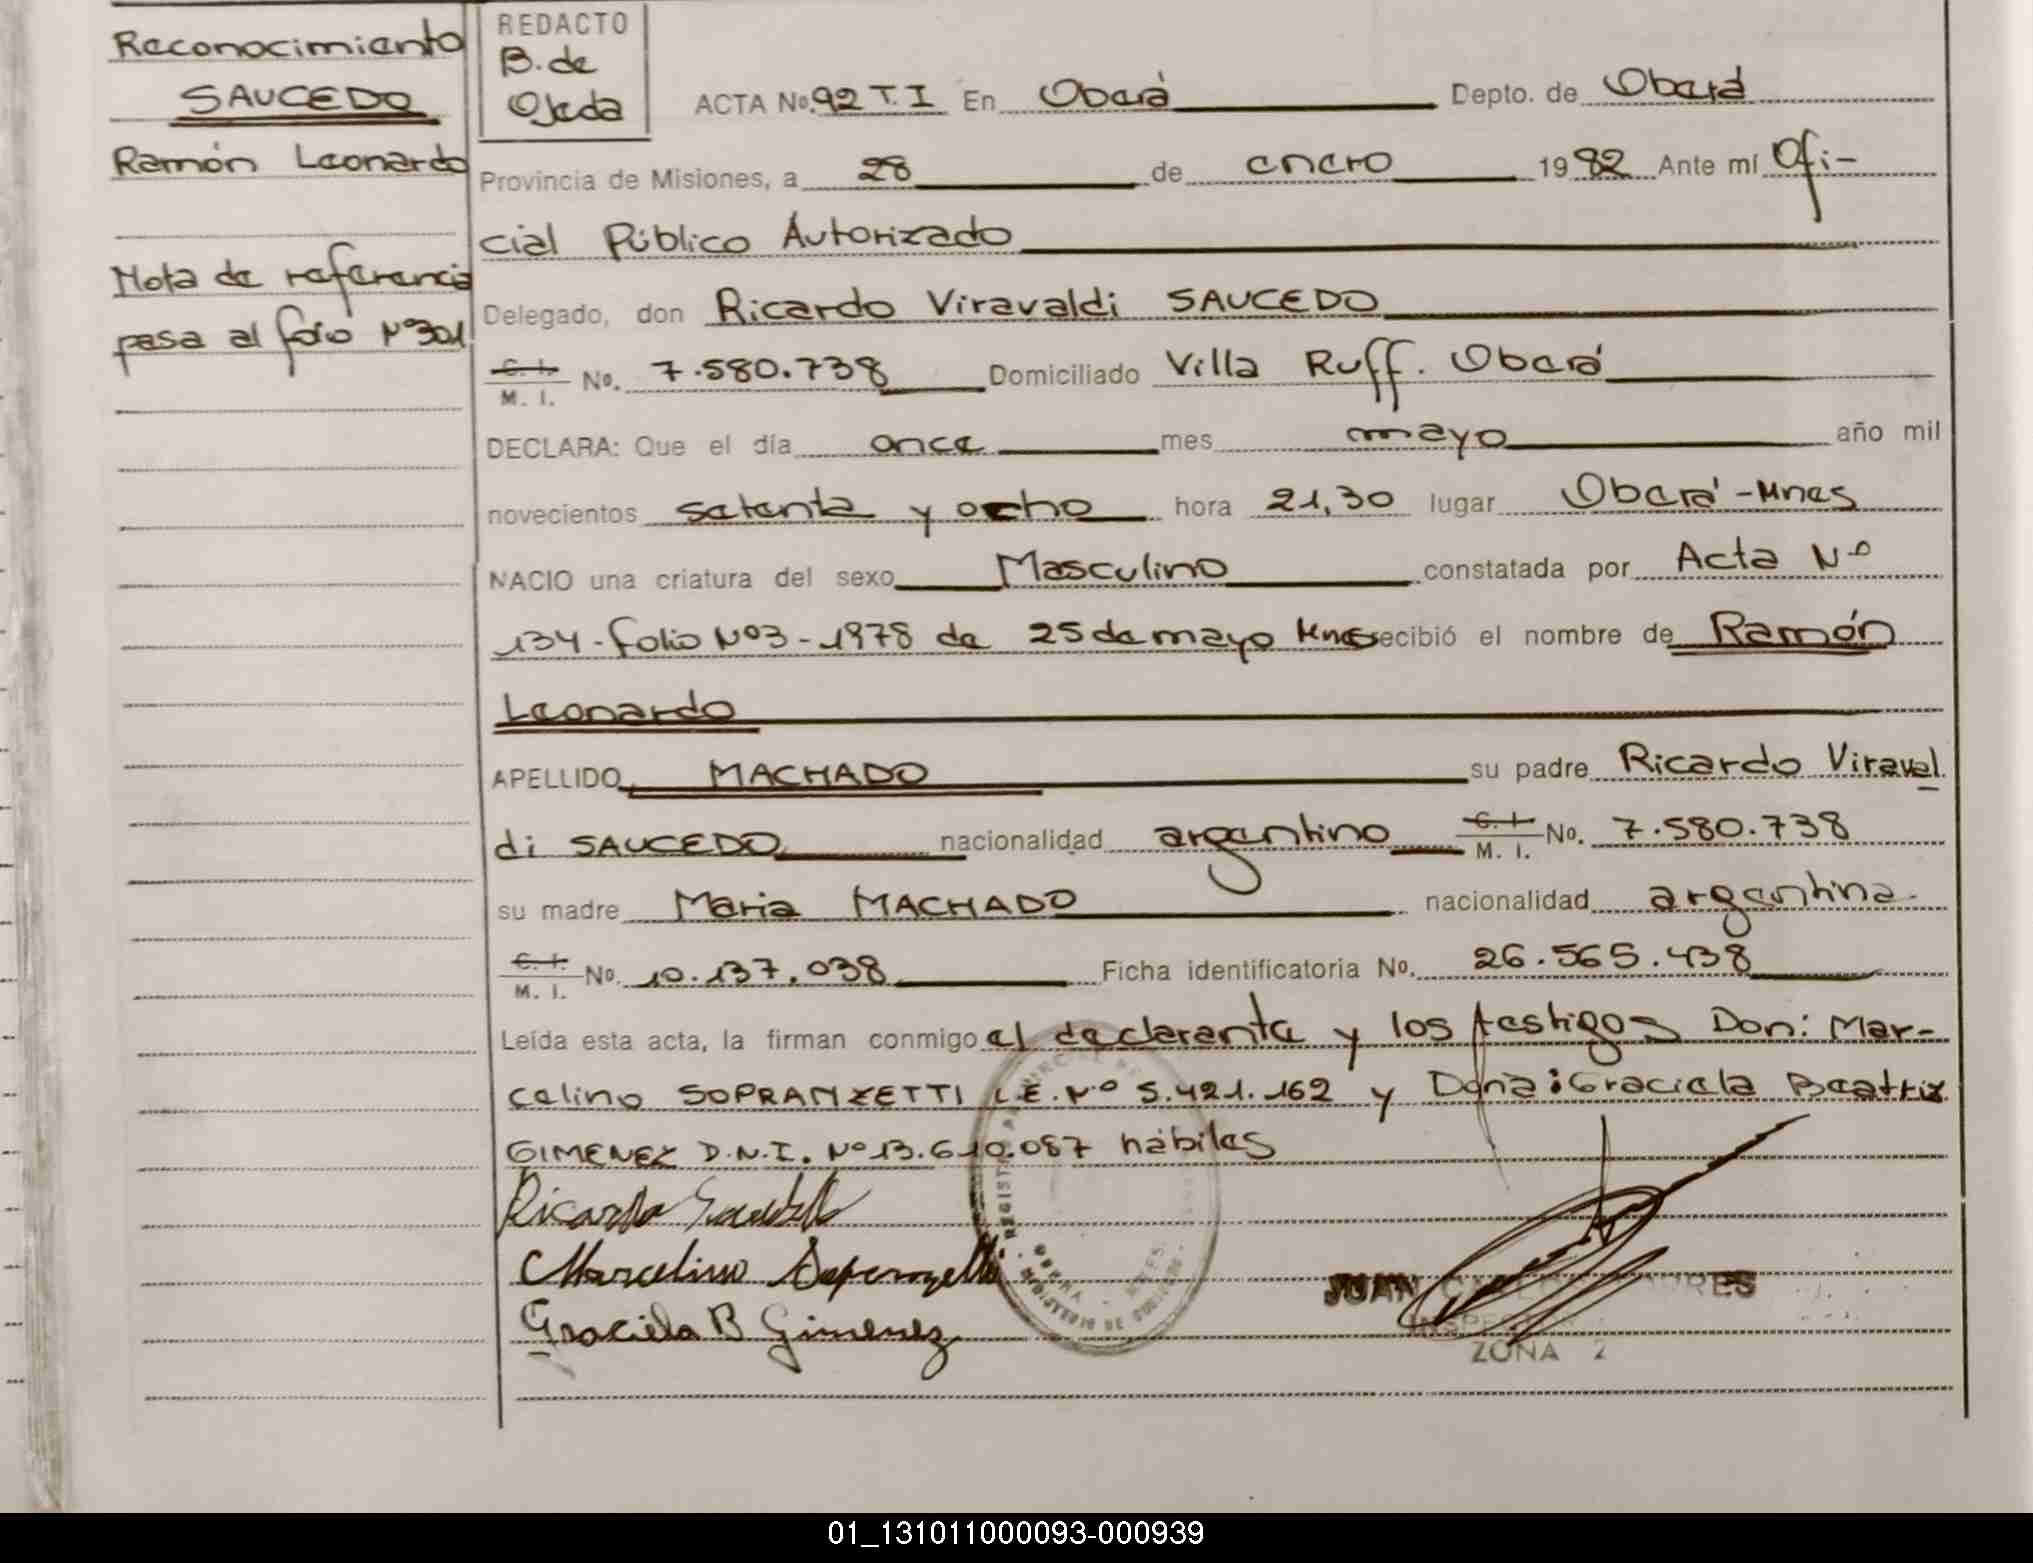 Reconocimiento
SAUCEDO
Ramón Leonardo
Nota de referencia
pasa al folio Nº301
REDACTO
B. de
Ojeda
ACTA No. 92 T. I En Oberá Depto. de Oberá
Provincia de Misiones, a 28 de enero 1982 Ante mí Ofi-
cial Público Autorizado
Delegado, don Ricardo Viravaldi SAUCEDO
C. I. M. I. No. 7.580.738 Domiciliado Villa Ruff. Oberá
DECLARA: Que el día once mes mayo año mil
novecientos setenta y ocho hora 21,30 lugar Oberá-Mnes
NACIO una criatura del sexo Masculino constatada por Acta Nº
134-folio Nº3-1978 de 25 de mayo Mnes recibió el nombre de Ramón
Leonardo
APELLIDO MACHADO su padre Ricardo Viraval
di SAUCEDO nacionalidad argentino C. I. M. I. No. 7.580.738
su madre Maria MACHADO nacionalidad argentina.
C. I. M. I. No. 10.137.038 Ficha identificatoria No. 26.565.438
Leída esta acta, la firman conmigo el declarante y los testigos Don: Mar-
celino SOPRANZETTI L.E. Nº 5.421.162 y Doña: Graciela Beatriz
GIMENEZ D.N.I. Nº 13.610.087 hábiles
Ricardo
Marcelino
Graciela B Gimenez
JUAN
ZONA 2
01_131011000093-000939